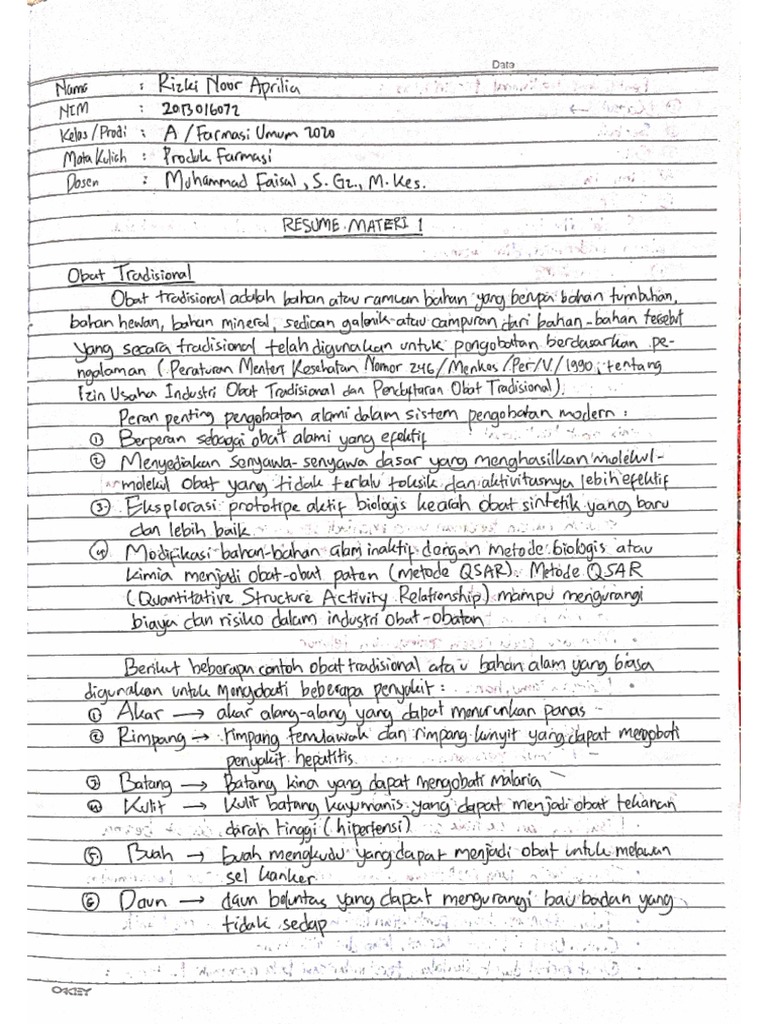 Date
Nama : Rizki Noor Aprilia
NIM : 2013016072
Kelas/Prodi : A / Farmasi Umum 2020
Mata Kuliah : Produk Farmasi
Dosen : Muhammad Faisal, S. Gz., M. Kes.
RESUME MATERI 1
Obat Tradisional
Obat tradisional adalah bahan atau ramuan bahan yang berupa bahan tumbuhan,
bahan hewan, bahan mineral, sedian galenik atau campuran dari bahan-bahan tersebut
yang secara tradisional telah digunakan untuk pengobatan berdasarkan pe-
ngalaman (Peraturan Menteri Kesehatan Nomor 246/Menkes/Per/V/1990, tentang
Izin Usaha Industri Obat Tradisional dan Pendaftaran Obat Tradisional).
Peran penting pengobatan alami dalam sistem pengobatan modern :
① Berperan sebagai obat alami yang efektif
② Menyediakan senyawa-senyawa dasar yang menghasilkan molekul-
molekul obat yang tidak terlalu toksik dan aktivitasnya lebih efektif
③ Eksplorasi prototipe aktif biologis kearah obat sintetik yang baru
dan lebih baik
④ Modifikasi bahan-bahan alam inaktif dengan metode biologis atau
kimia menjadi obat-obat paten (metode QSAR). Metode QSAR
(Quantitative Structure Activity Relationship) mampu mengurangi
biaya dan risiko dalam industri obat-obatan
Berikut beberapa contoh obat tradisional atau bahan alam yang biasa
digunakan untuk mengobati beberapa penyakit :
① Akar → akar alang-alang yang dapat menurunkan panas
② Rimpang → rimpang temulawak dan rimpang kunyit yang dapat mengobati
penyakit hepatitis.
③ Batang → Batang kina yang dapat mengobati malaria
④ Kulit → Kulit batang kayumanis yang dapat menjadi obat tekanan
darah tinggi (hipertensi)
⑤ Buah → buah mengkudu yang dapat menjadi obat untuk melawan
sel kanker
⑥ Daun → daun beluntas yang dapat mengurangi bau badan yang
tidak sedap
OKEY